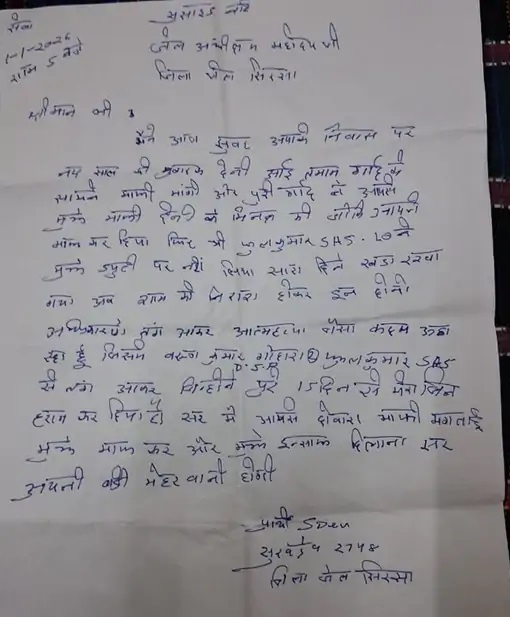 सेवा
1-1-2026
शाम 5 बजे
सुसाइड नोट
जेल अधीक्षक महोदय जी
जिला जेल सिरसा
श्रीमान जी
मैंने आज सुबह आपके निवास पर
नए साल की मुबारक देनी आई तमाम गार्द के
सामने माफी मांगी और पुरी गार्द ने आपसे
मुझे माफी देने के लिए की आपने
माफ कर दिया फिर श्री फुलकुमार SAS. ने
मुझे डयुटी पर नहीं लिया सारा दिन खडा रखवा
गया अब शाम को निराश होकर इन दोनो
अधिकारियो तंग आकर आत्महत्या जैसा कदम उठा
रहा हूँ जिसमे वरूण कुमार गोदारा D.S.P फुलकुमार SAS
से तंग आकर जिन्होने पुरे 15 दिन से मेरा जिना
हराम कर दिया है सर मै आपसे दोबारा माफी मंगता हूँ
मुझे माफ कर और मुझे इन्साफ दिलाना सर
आपकी बडी मेहरबानी होगी
प्रार्थी SDeu
सुख 2748
जिला जेल सिरसा